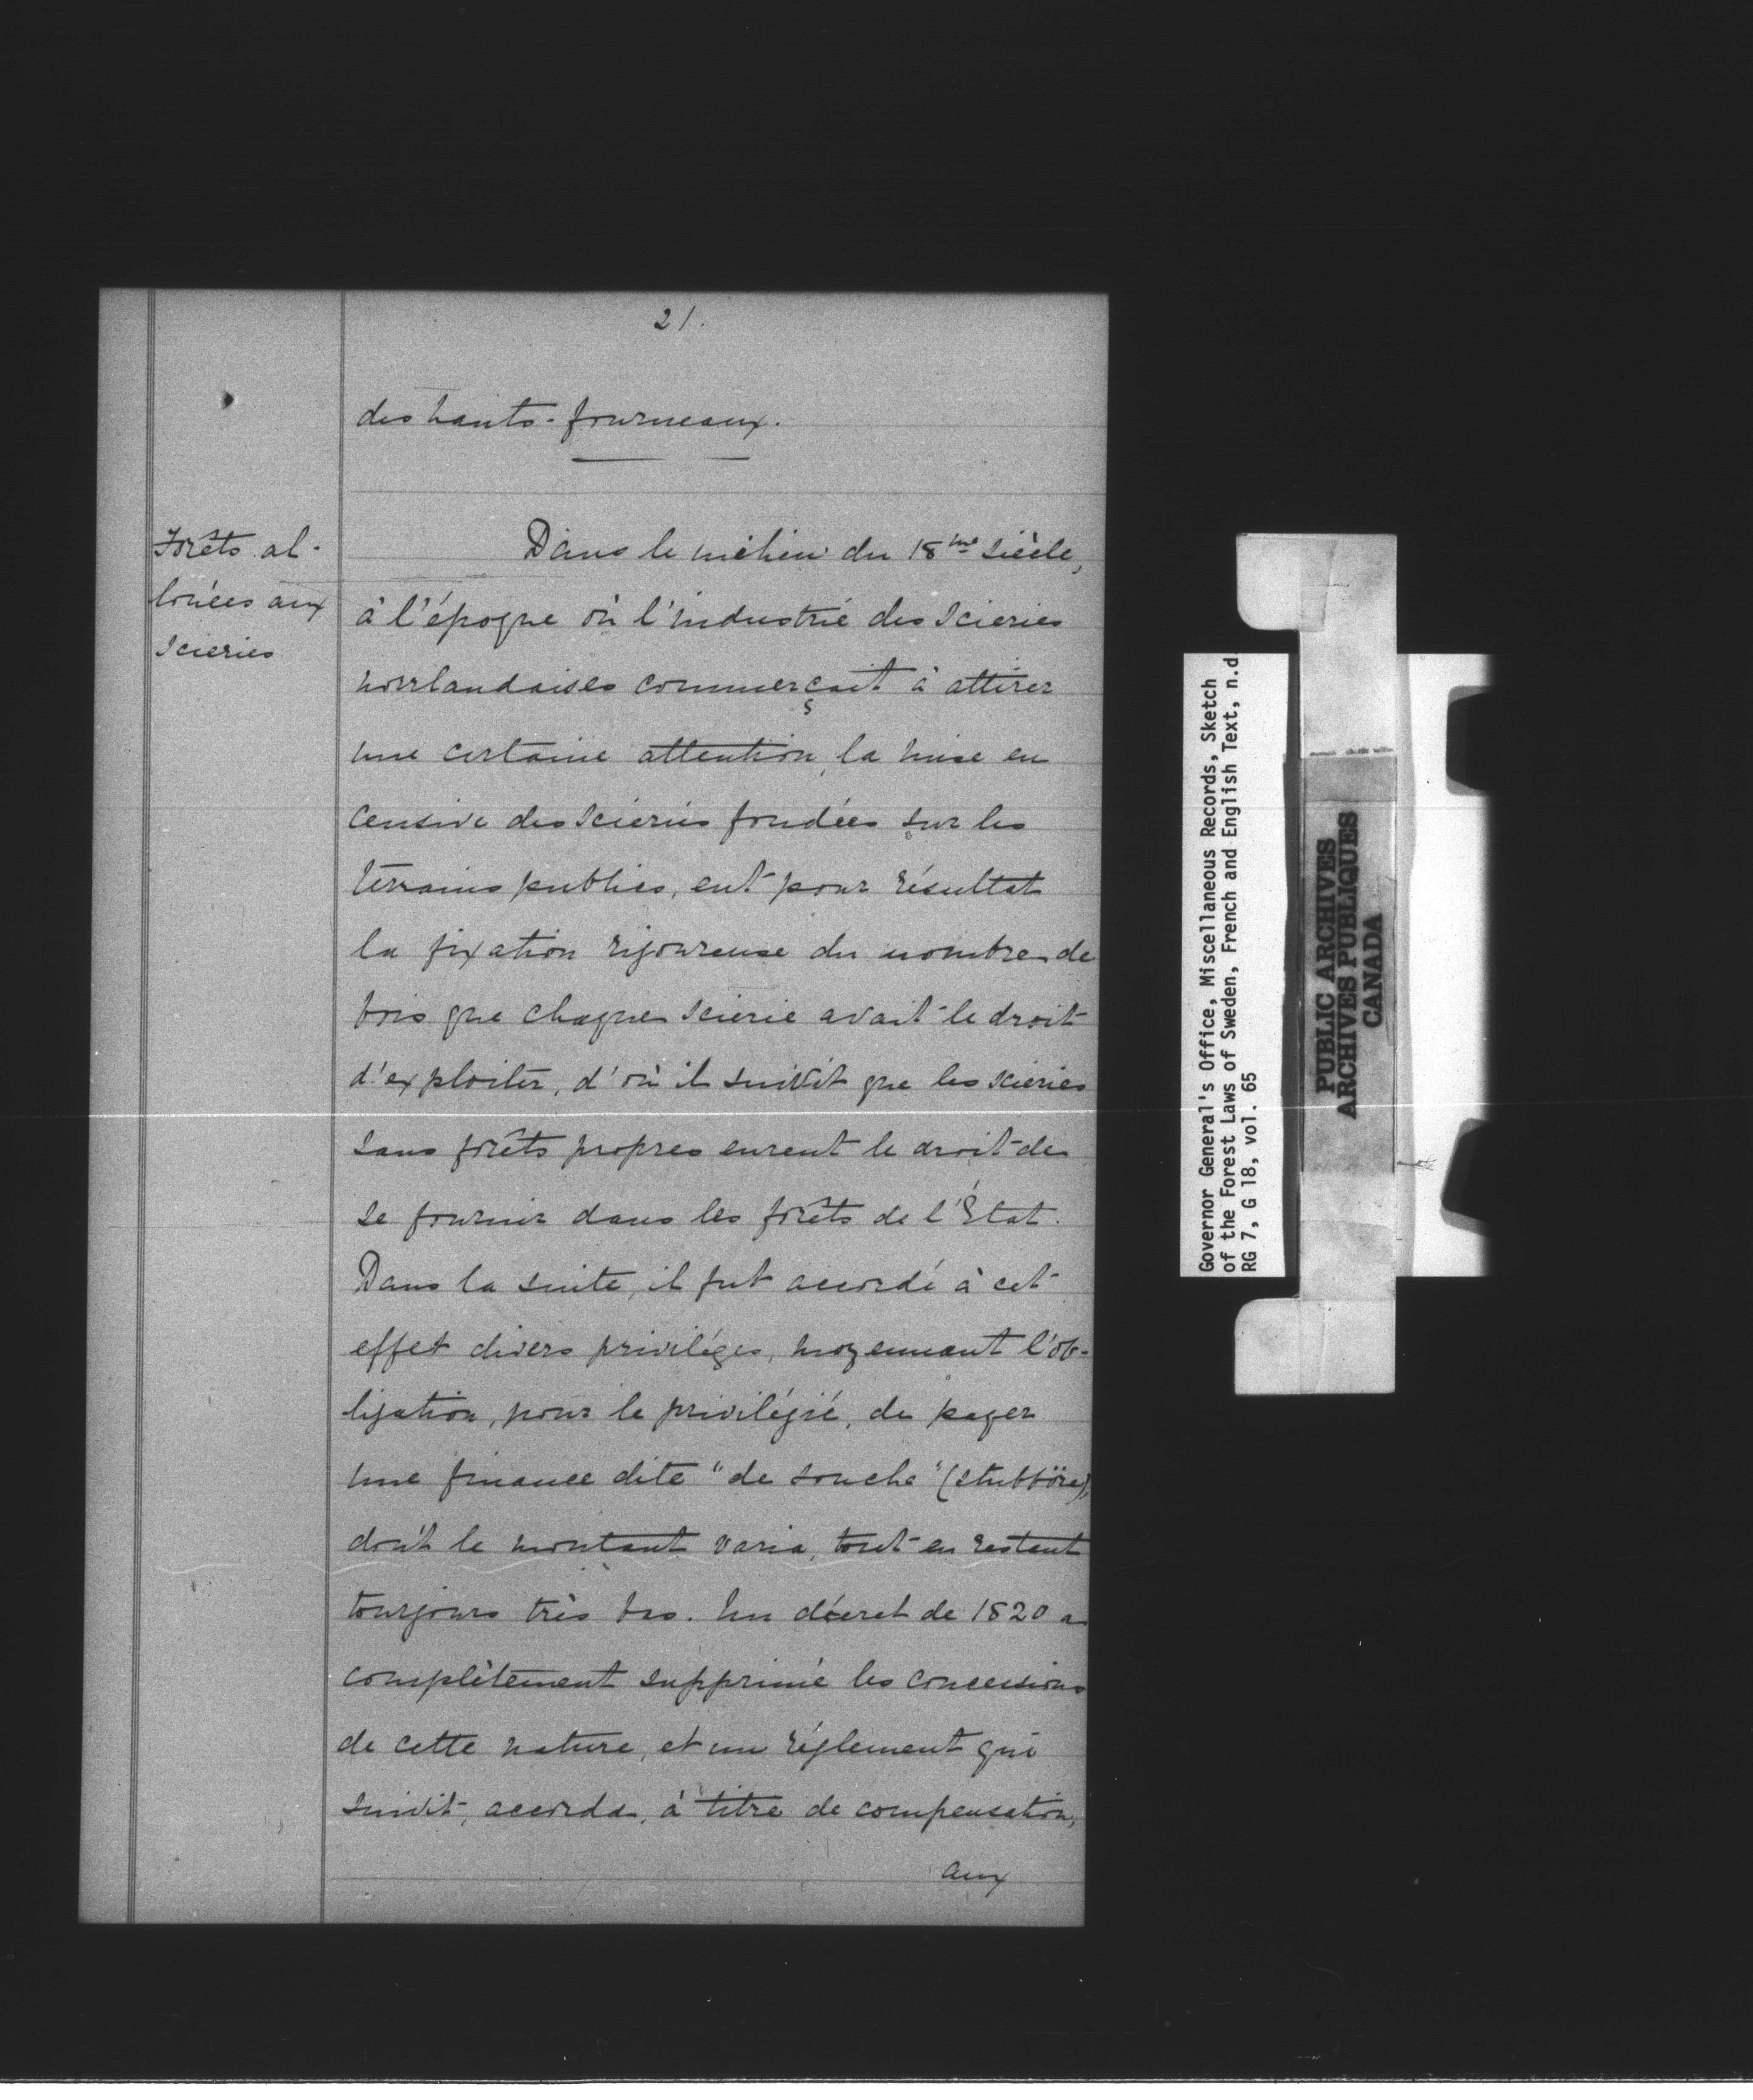 21.
des hauts-fourneaux.
Forêts al-
louées aux
scieries
Dans le milieu du 18me siècle,
à l'époque où l'industrie des scieries
norrlandaises commerçait à attirer
une certaine attention, la mise en
censive des scieries fondées sur les
terrains publics, eut pour résultat
la fixation rigoureuse du nombre de
bois que chaque scierie avait le droit
d'exploiter, d'où il suivit que les scieries
sans forêts propres eurent le droit de
se fournir dans les forêts de l'État.
Dans la suite, il fut accordé à cet
effet divers priviléges, moyennant l'ob-
ligation, pour le privilégié, de payer
une finance dite "de souche" (stubböre),
dont le montant varia, tout en restant
toujours très bas. Un décret de 1820 a
complètement supprimé les concessions
de cette nature, et un réglement qui
suivit, accorda, à titre de compensation,
aux
Governor General's Office, Miscellaneous Records, Sketch
of the Forest Laws of Sweden, French and English Text, n.d
RG 7, G 18, vol. 65
PUBLIC ARCHIVES
ARCHIVES PUBLIQUES
CANADA